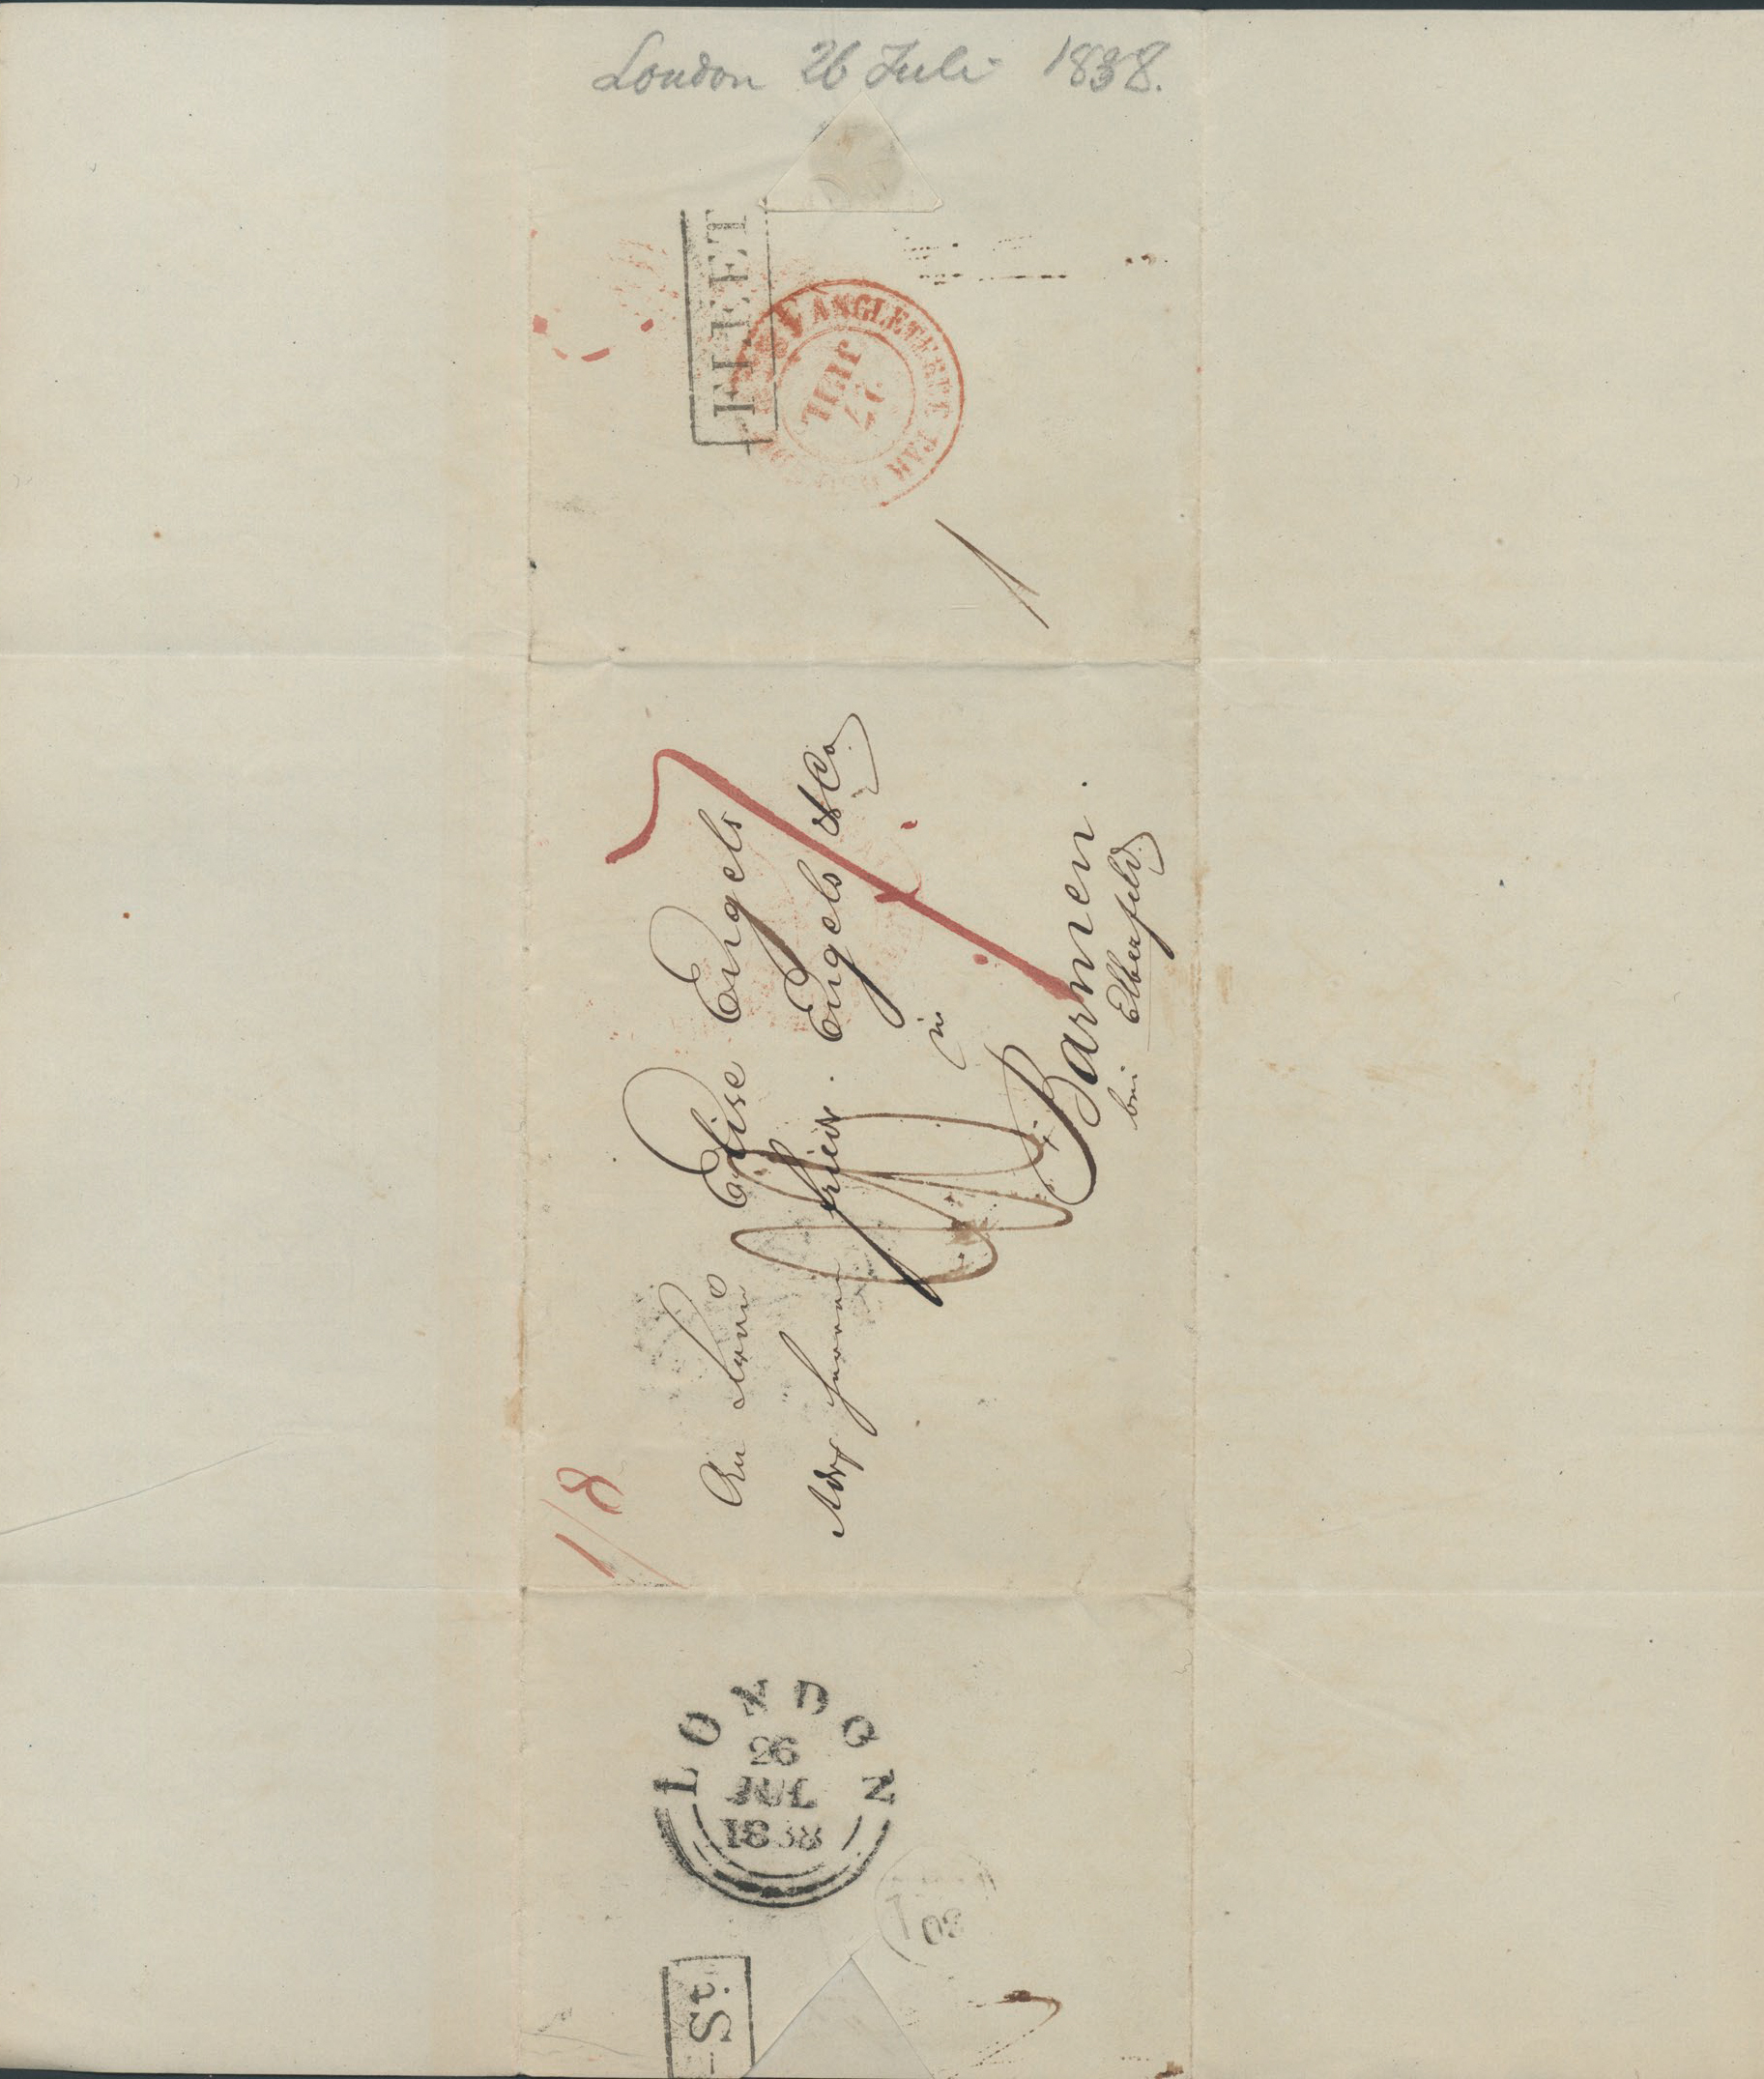 London 26 Juli 1838.
FLEET
ANGLETERRE PAR
27
JUIL
1
1/8
An Frau Elise Engels
Adr Herren Fried. Engels & Co.
in
Barmen.
bei Elberfeld
LONDON
26
JUL
1838
St.